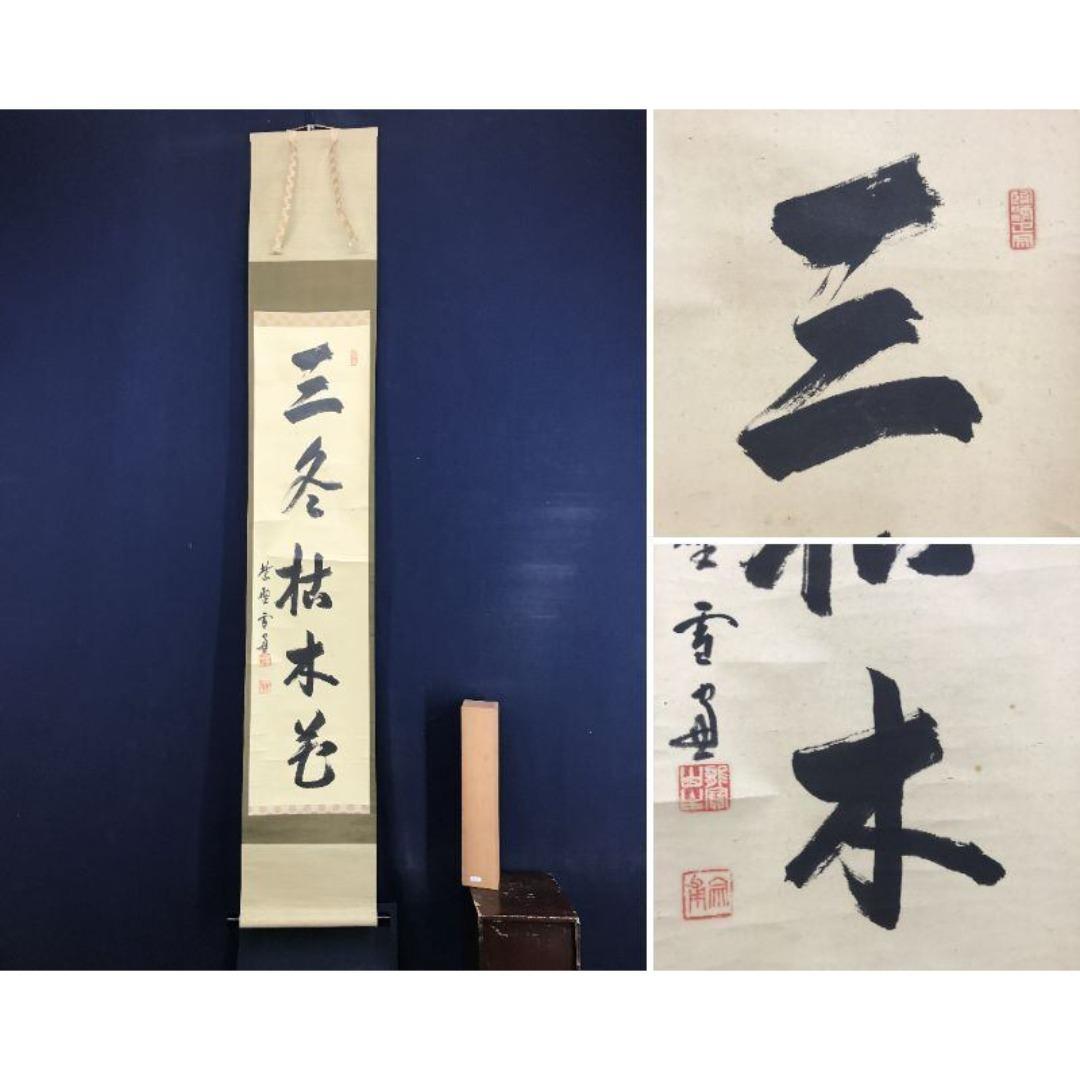 三冬枯木花
紫野雪庵
三
雪庵
木